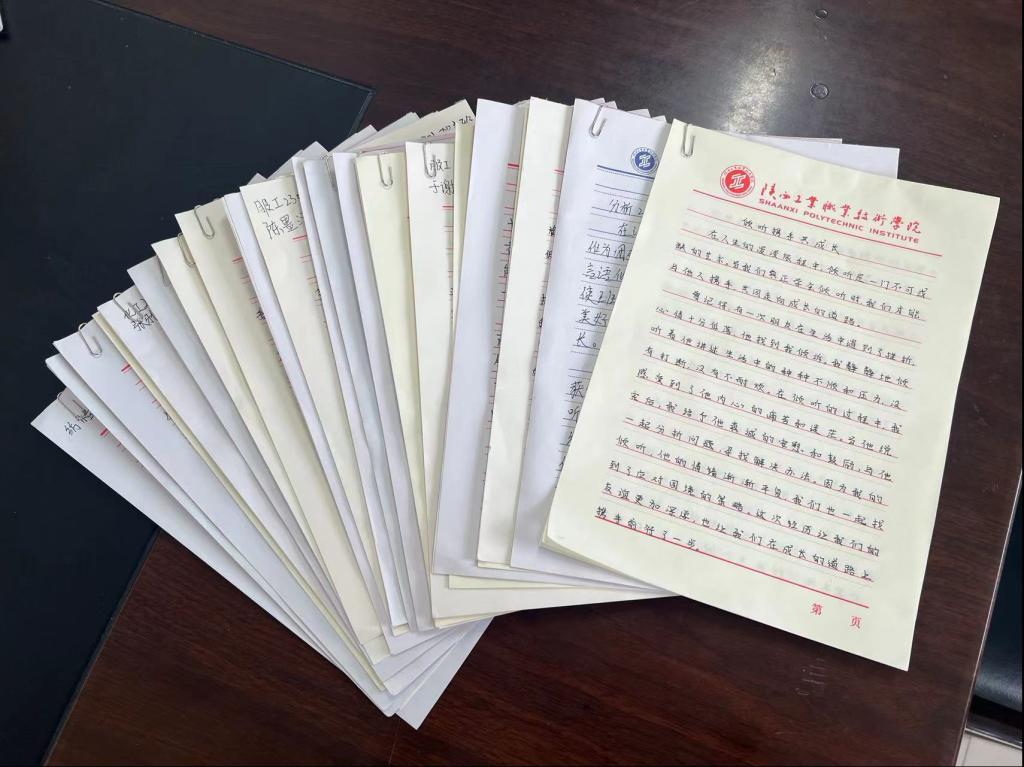 陕西工业职业技术学院
SHAANXI POLYTECHNIC INSTITUTE
倾听携手共成长
在人生的漫漫旅程中，倾听是一门不可或
缺的艺术。当我们真正学会倾听时，我们才能
与他人携手共同走向成长的道路。
曾记得有一次朋友在生活中遇到了挫折，
心情十分低落。他找到我倾诉，我静静地倾
听着他讲述生活中的种种不顺和压力，没
有打断，没有不耐烦。在倾听的过程中，我
感受到了他内心的痛苦和迷茫。当他说
完后，我给予他真诚的安慰和鼓励，与他
一起分析问题，寻找解决办法。因为我的
倾听，他的情绪渐渐平复，我们也一起找
到了应对困境的策略。这次经历让我们的
友谊更加深厚，也让我们在成长的道路上
携手前行了一步。
第 页
分析
在
长。
获
听
服工
服工23
陈墨
化工